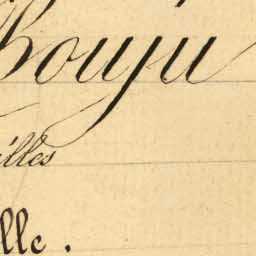 houju
illes
lle.